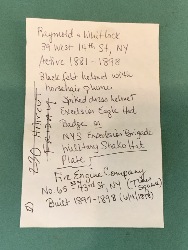 Raymold & Whitlock
39 West 14th St, NY
Active 1881-1898
Black felt helmet with
horsehair plume
Spiked dress helmet
Excelsior Eagle Hat
Badge or
NYS Excelsior Brigade
Military Shako Hat
Plate
Fire Engine Company
No. 65 43rd St, NY (Times
Square)
Built 1897-1898